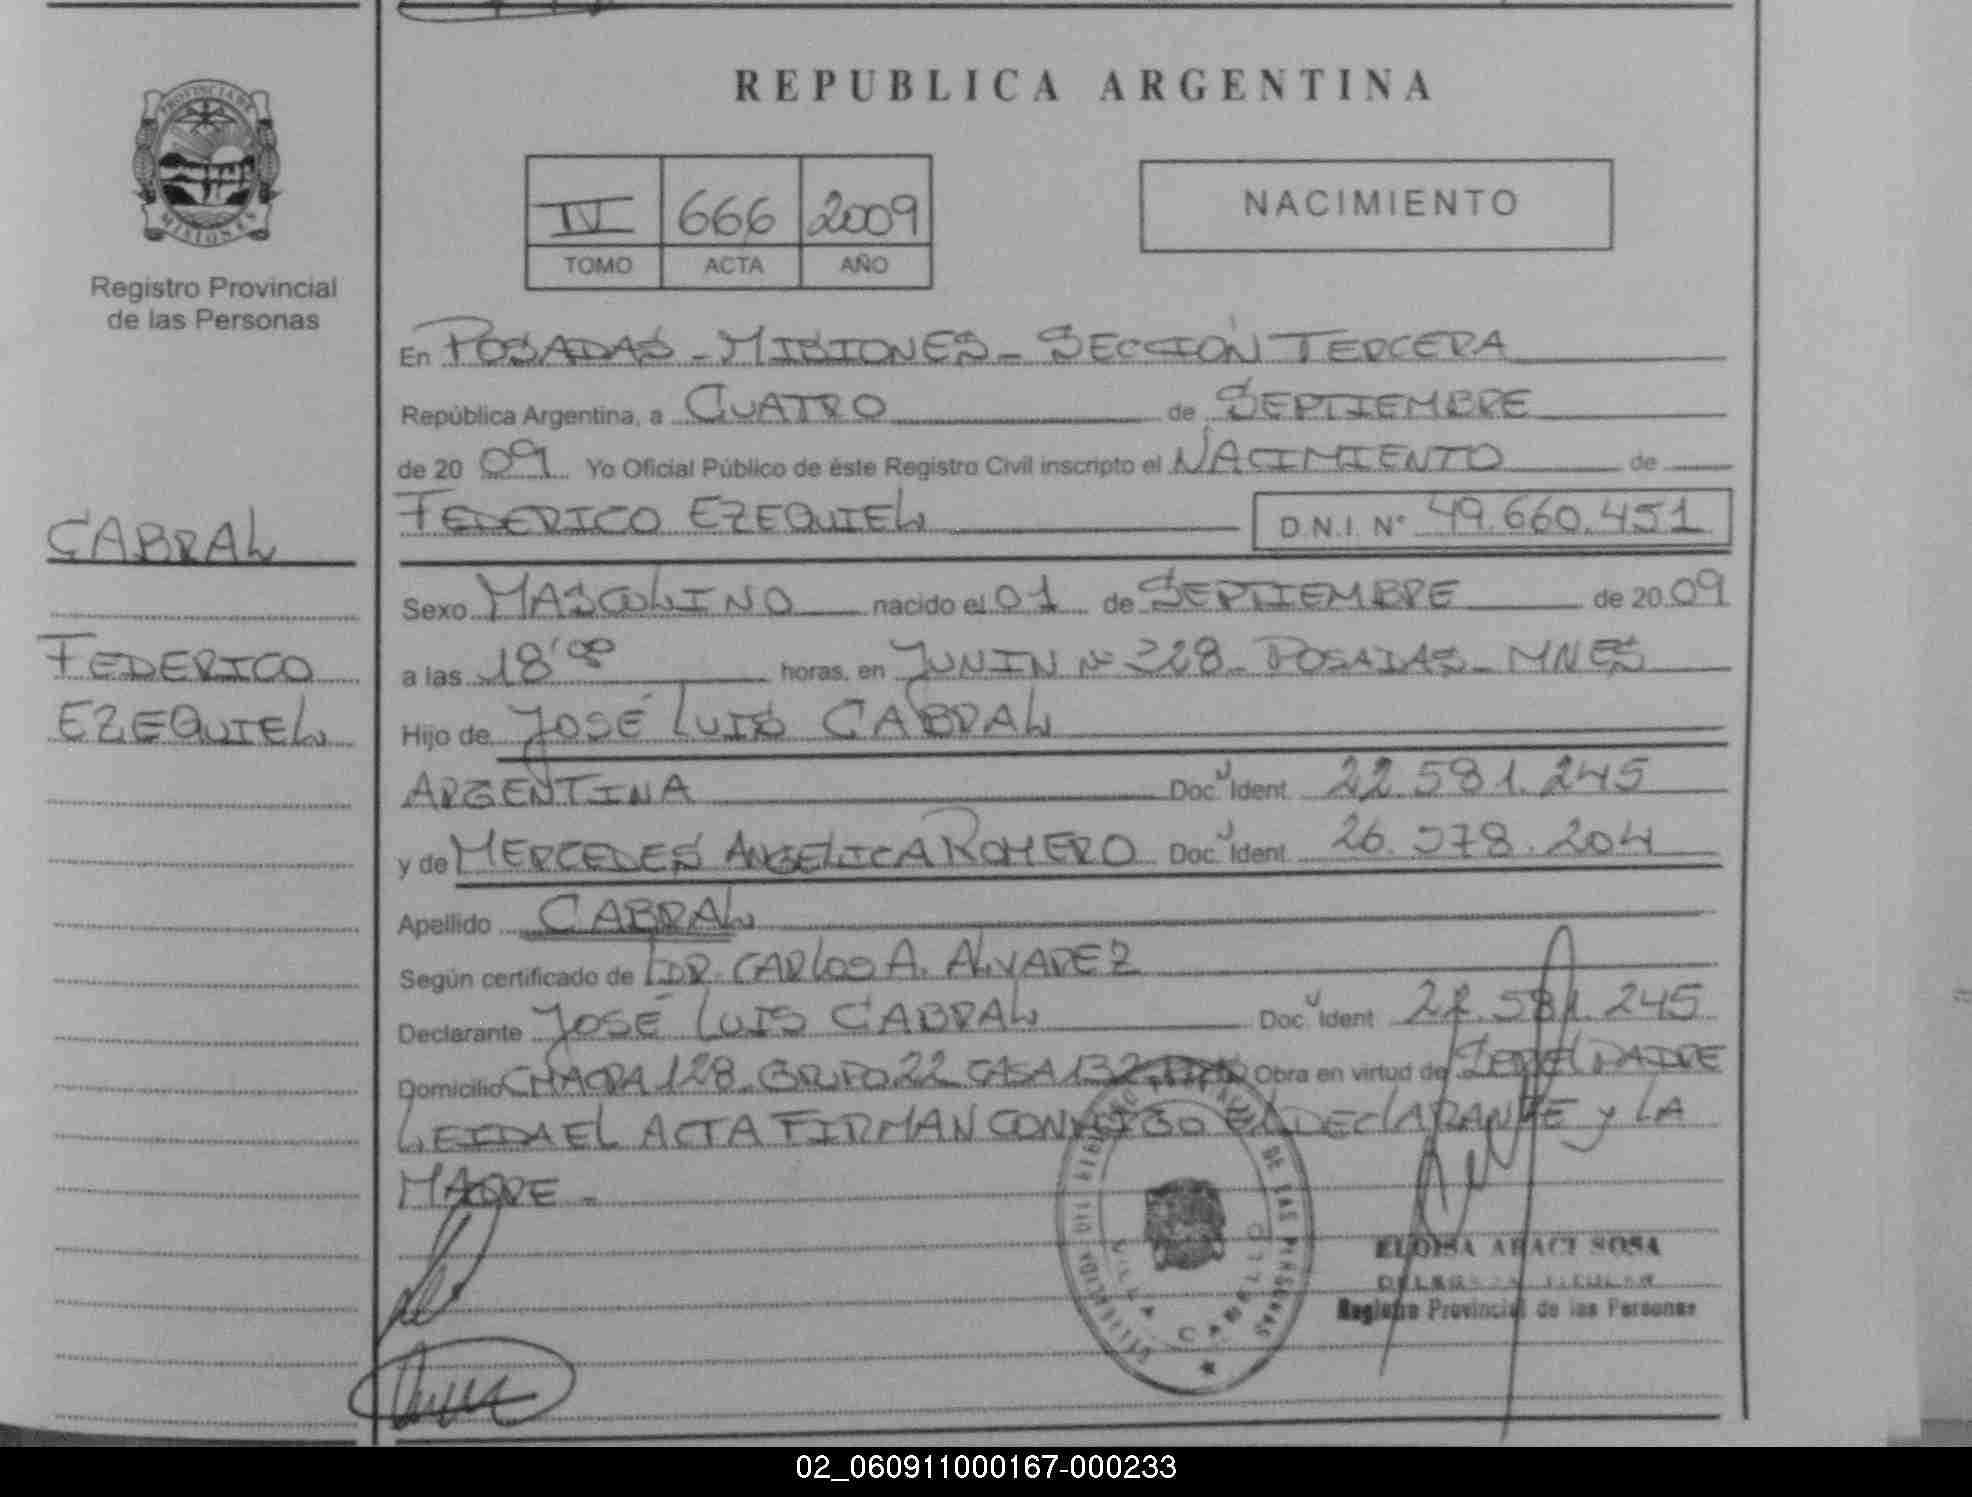 REPUBLICA ARGENTINA
PROVINCIA DE
MISIONES
Registro Provincial
de las Personas
IV 666 2009
TOMO ACTA AÑO
NACIMIENTO
En POSADAS - MISIONES - SECCIÓN TERCERA
República Argentina, a CUATRO de SEPTIEMBRE
de 20 09 Yo Oficial Público de éste Registro Civil inscripto el NACIMIENTO de
FEDERICO EZEQUIEL D.N.I. N° 49.660.451
CABRAL
FEDERICO
EZEQUIEL
Sexo MASCULINO nacido el 01 de SEPTIEMBRE de 20 09
a las 18'00 horas, en JUNIN N° 328 - POSADAS - MNES
Hijo de JOSÉ LUIS CABRAL
ARGENTINA Doc. Ident 22.581.245
y de MERCEDES ANGELICA ROMERO Doc. Ident 26.378.204
Apellido CABRAL
Según certificado de DR. CARLOS A. ALVAREZ
Declarante JOSÉ LUIS CABRAL Doc. Ident 22.581.245
Domicilio CHACRA 128 - GRUPO 22 CASA 132 Obra en virtud de SER EL PADRE
LEIDA EL ACTA FIRMAN CONMIGO EL DECLARANTE y LA
MADRE -
REGISTRO PROVINCIAL DE LAS PERSONAS
VILLA CABELLO
ELOISA ARACI SOSA
DELEGADA TITULAR
Registro Provincial de las Personas
02_060911000167-000233